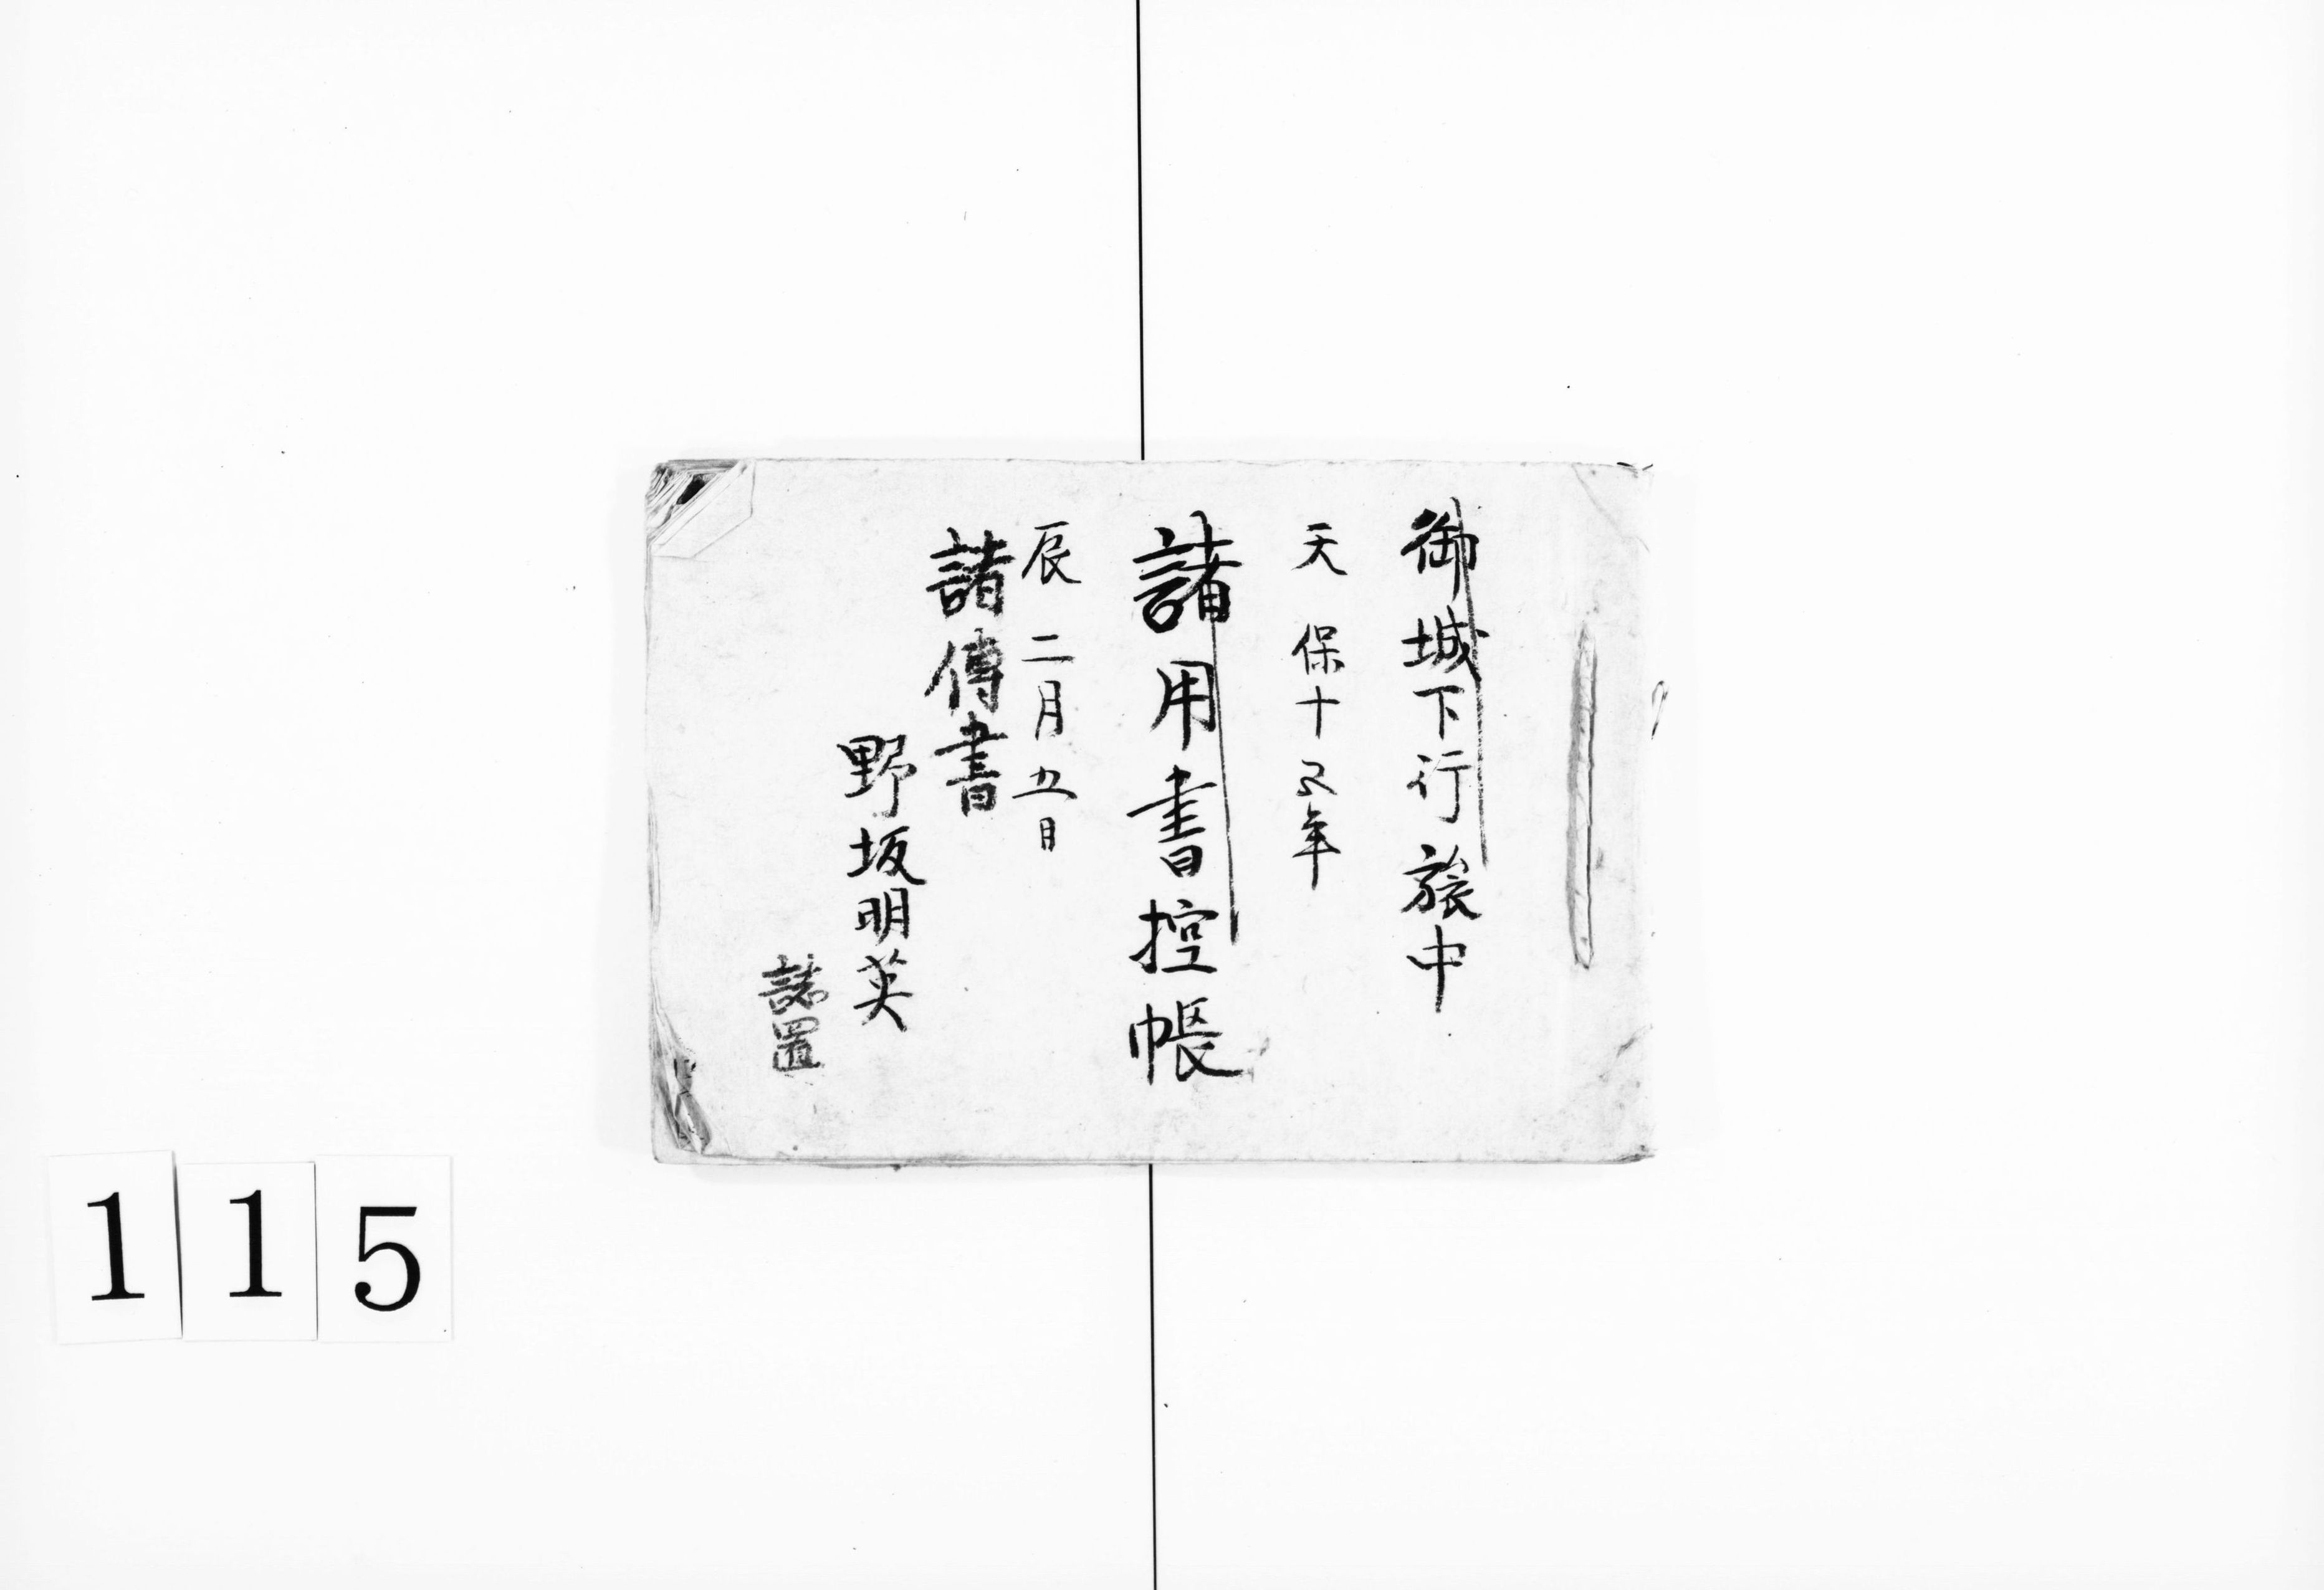 御城下行旅中
天保十五年
諸用書控帳
辰二月五日
諸傳書
野坂明英
誌置
115